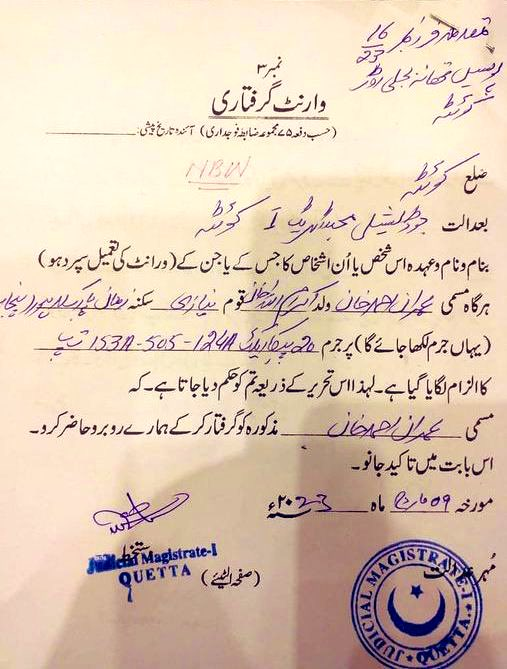 مقدمہ نمبر 16/23
پولیس تھانہ بجلی روڈ
کوئٹہ
نمبر ۳
وارنٹ گرفتاری
(حسب دفعہ ۷۵ مجموعہ ضابطہ فوجداری) آئندہ تاریخ پیشی:
NBW
ضلع کوئٹہ
بعدالت جوڈیشل مجسٹریٹ I کوئٹہ
بنام و نام و عہدہ اس شخص یا اُن اشخاص کا جس کے یا جن کے (ورانٹ کی تعمیل سپرد ہو)
ہرگاہ مسمی عمران احمد خان ولد اکرام اللہ خان قوم نیازی سکنہ زمان پارک لاہور پنجاب
(یہاں جرم لکھا جائے گا) پر جرم 153A-505-124A ت پ 20 پیکا ایکٹ
کا الزام لگایا گیا ہے۔ لہذا اس تحریر کے ذریعہ تم کو حکم دیا جاتا ہے۔ کہ
مسمی عمران احمد خان مذکورہ کو گرفتار کر کے ہمارے روبرو حاضر کرو۔
اس بابت میں تاکید جانو۔
مورخہ 09 ماہ مارچ ۲۰23ء
دستخط
Judicial Magistrate-I
QUETTA
(صفحہ الٹیئے)
مُہر عدالت
JUDICIAL MAGISTRATE-I QUETTA